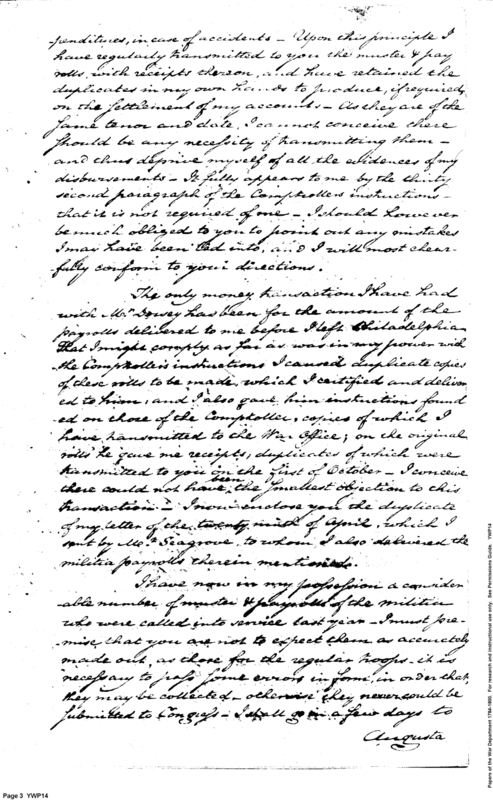 penditures, in case of accidents - Upon this principle I
have regularly transmitted to you the muster & pay
rolls, with receipts thereon, and have retained the
duplicates in my own hands to produce, if required,
on the settlement of my accounts - As they are of the
same tenor and date, I cannot conceive there
should be any necessity of transmitting them -
and thus deprive myself of all the evidences of my
disbursements - It fully appears to me by the thirty
second paragraph of the Comptrollers instructions -
that it is not required of me - I should however
be much obliged to you to point out any mistakes
I may have been led into, and I will most chear-
fully conform to your directions.
The only money transaction I have had
with Mr. has been for the amount of the
payrolls delivered to me before I left Philadelphia
That I might comply as far as was in my power with
the Comptrollers instructions I caused duplicate copies
of these rolls to be made, which I certified and deliver
ed to him, and I also gave him instructions found
-ed on those of the Comptroller, copies of which I
have transmitted to the War Office; on the original
rolls he gave me receipts, duplicates of which were
transmitted to you on the first of October - I conceive
there could not have been the smallest objection to this
transaction - I now enclose you the duplicate
of my letter of the twenty ninth of April, which I
sent by Mr. Seagrove, to whom I also delivered the
militia payrolls therein mentioned.
I have now in my possession a consider
able number of muster & payrolls of the militia
who were called into service last year - I must pre-
-mise, that you are not to expect them as accurately
made out, as those for the regular troops - it is
necessary to pass some errors in form, in order that
they may be collected - otherwise they never could be
submitted to Congress - I shall go in a few days to
Augusta
Page 3 YWP14
Papers of the War Department 1784-1800. For research and instructional use only. See Permissions Guide. YWP14